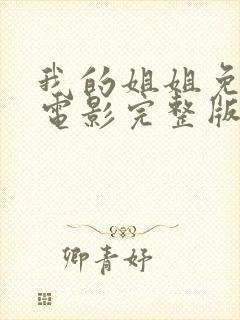 我的姐姐免
電影完整版
卿青妤